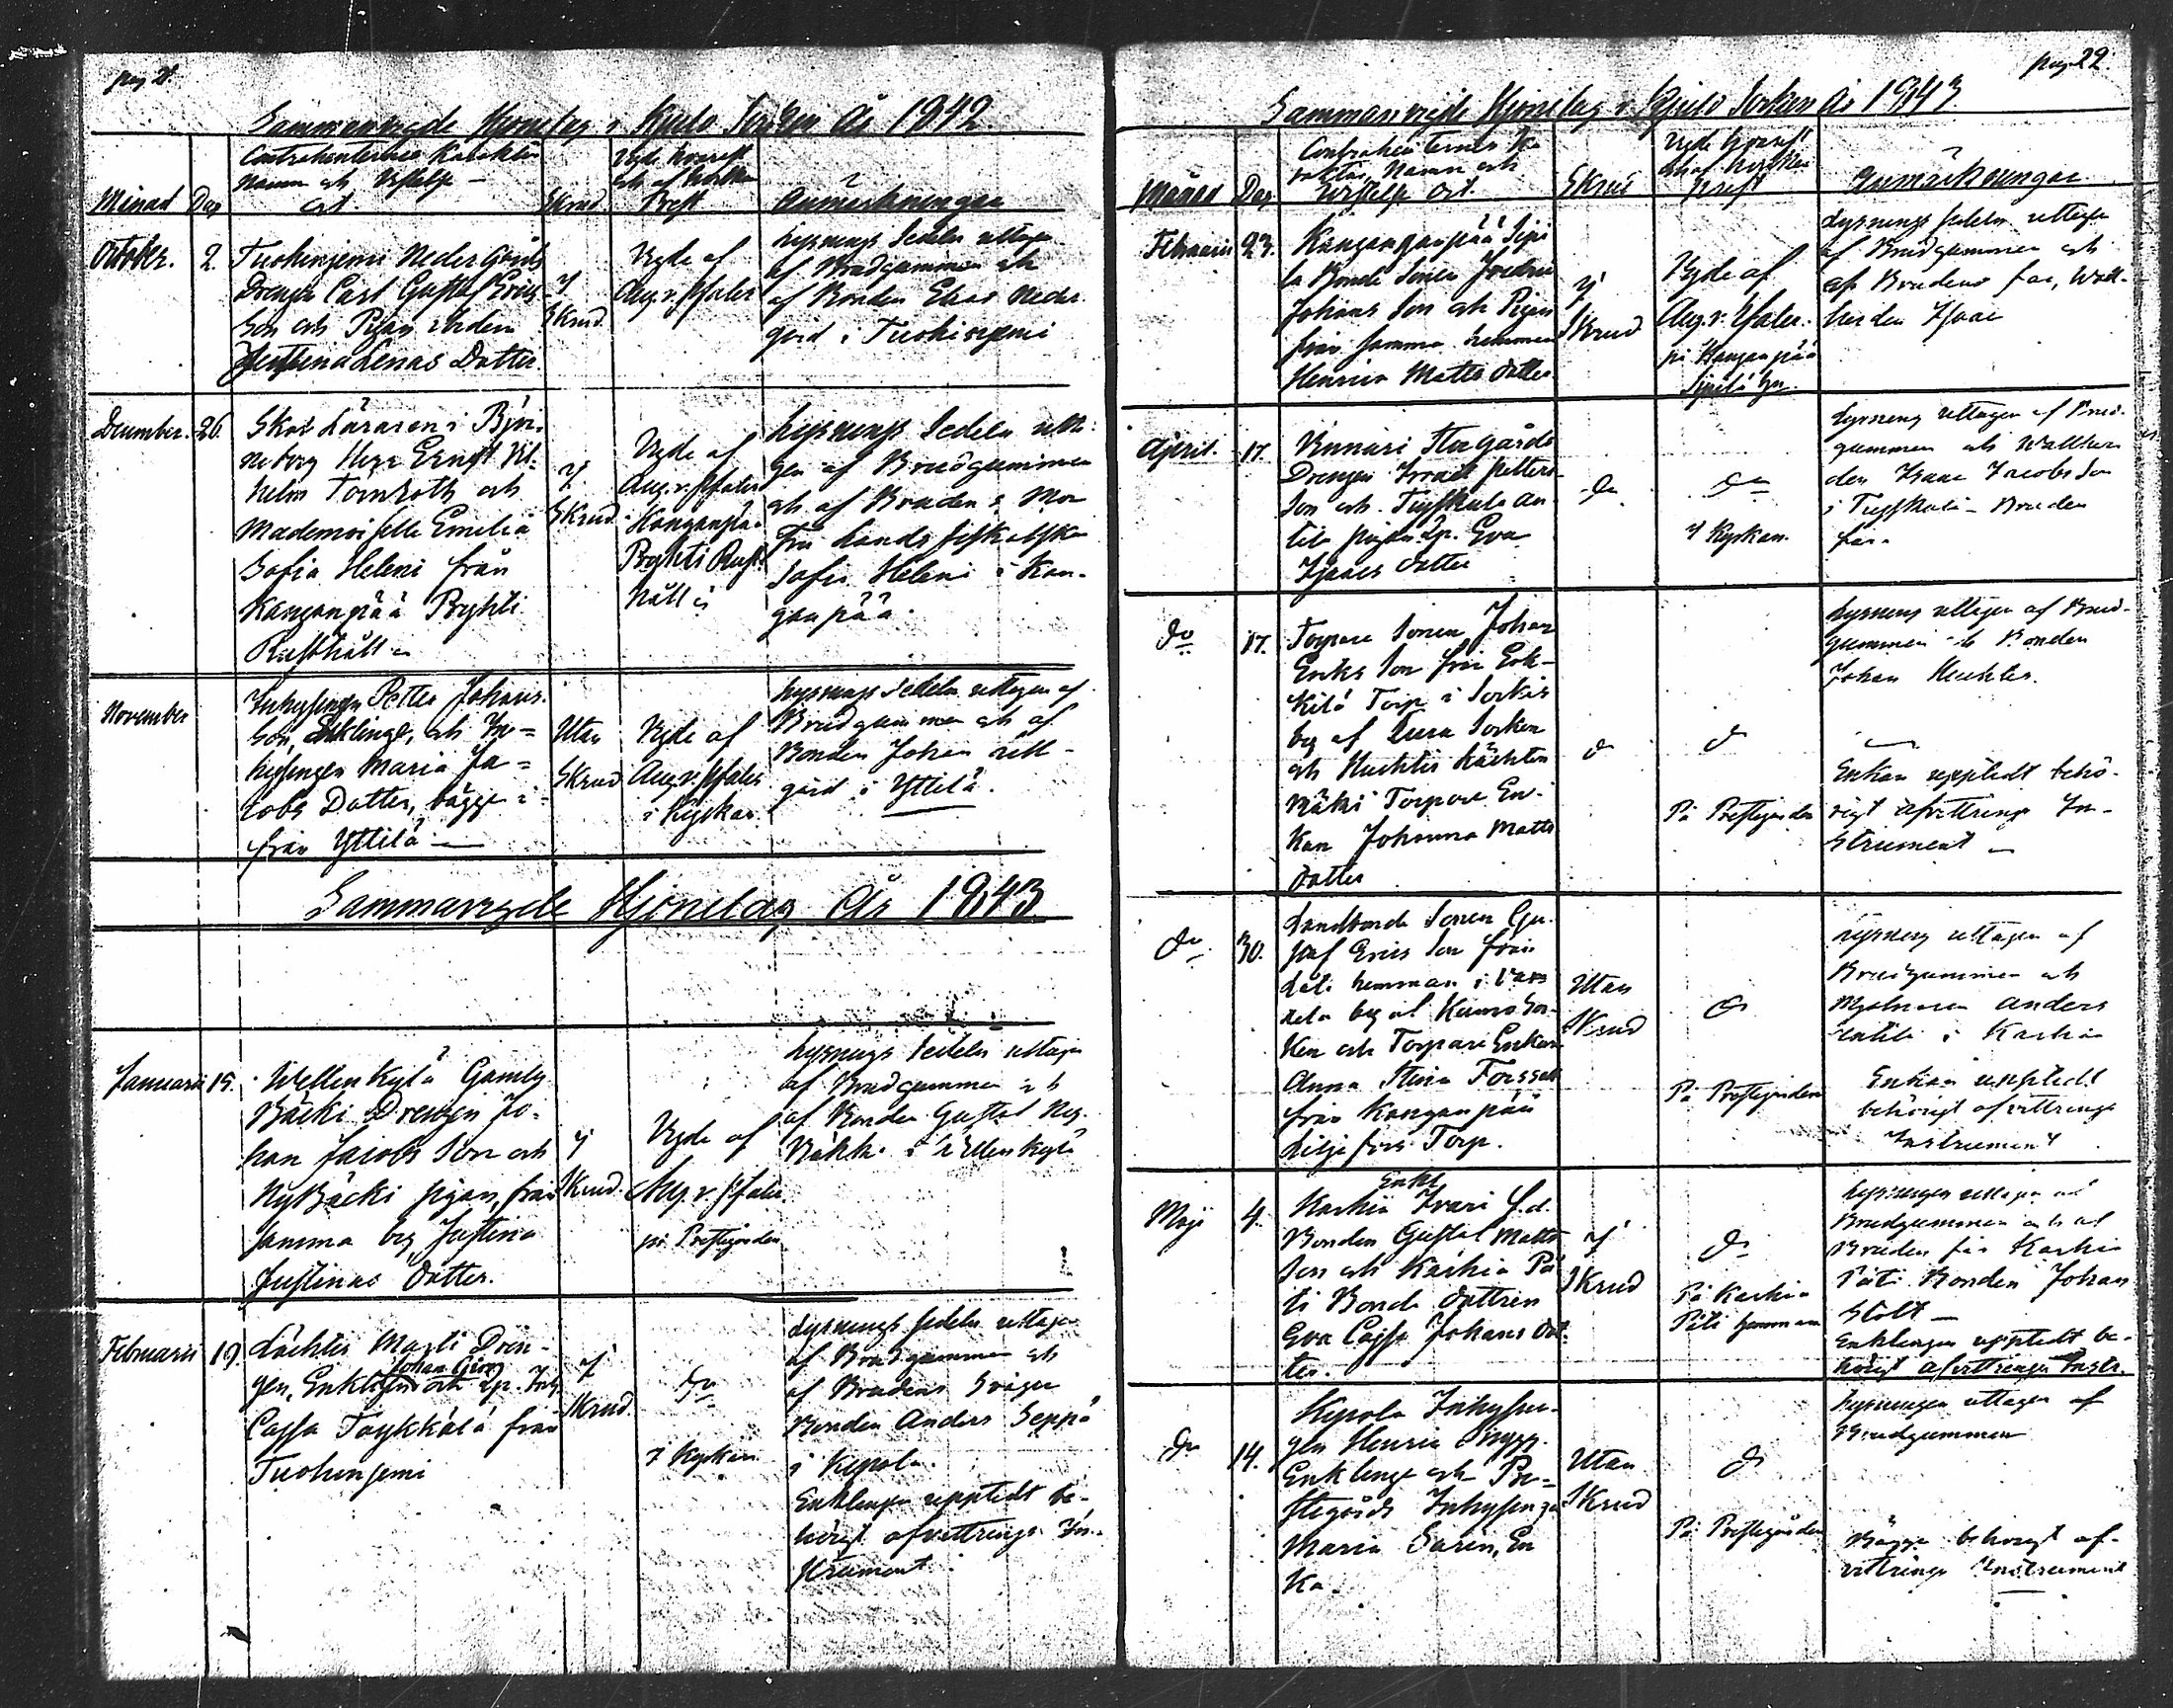 pag 21.
Sammanvigde Hjonelag i Kjulo Socken År 1842.
Månad
Dag
Contrahenternes Karakter
Namn och Vistelse
ort.
Skrud
Vigde hvarest
och af hvilken
Prest
Anmärkningar
October.
2.
Tuohinjemi Nedergårds
Drengen Carl Gustaf Erics
Son och Pigan ibidem
Justina Lenas Dotter.
i
Skrud.
Vigde af
Aug. v. Pfaler
Lysnings Sedeln uttagen
af Brudgummen och
af Bonden Elias Neder
gård i Tuohiniemi
December.
26.
Skol Läraren i Björ-
neborg Herr Ernst Vil-
helm Törnroth och
Mademoiselle Emelia
Sofia Heleni från
Kanganpää Pryhti
Rusthåll
i
Skrud.
Vigde af
Aug. v. Pfaler
i Kanganpää
Pryhti Rust
håll
Lysnings Sedeln utta-
gen af Brudgummen
och af Brudens Mor
Fru Lands fiskalskan
Sofia Heleni i Kan-
ganpää.
November
Inhysingen Petter Johans
Son, Enkling, och In=
hysingen Maria Ja=
cobs Dotter, bägge
från Yttilä
Utan
Skrud
Vigde af
Aug. v. Pfaler
i Kyrkan.
Lysnings Sedeln uttagen af
Brudgummen och af
Bonden Johan
gård i Yttilä.
Sammanvigde Hjonelag År 1843.
Januarii
19.
Wellenkylä Gamby
Bäcki Drengen Jo-
han Jacobs Son och
NyBäcki pigan, från
samma by Justina
Justinas Dotter.
i
Skrud.
Vigde af
Aug. v. Pfaler
på Prestegården
Lysnings Sedeln uttagen
af Brudgummen och
af Bonden Gustaf Ny-
i Wellenkylä
Februarii
19.
Lächteis Dren-
Johan Georg
gen, Enkling och
Cajsa från
Tuohinjemi
i
Skrud.
do
i Kyrkan
Lysnings sedeln uttagen
af Brudgummen och
af Brudens Svåger
Bonden Anders Seppä
i Kepola.
Enklingen uppteedt be-
hörigt afvittrings In-
strument.
pag 22.
Sammanvigde Hjonelag i Kjulo Socken År 1843.
Månad
Dag
Contrahenternes Ka
rakter, Namn och
Vistelse Ort.
Skrud
Vigde hvarest
och af hvilken
prest
Anmärkningar
Februarii
23.
Kanganpää Sipi
la Bonde Sonen
Johans Son och Pigan
från samma hemman
Henrica Matts dotter
i
Skrud
Vigde af
Aug. v. Pfaler.
på Kanganpää
Sipilä
Lysnings sedeln uttagen
af Brudgummen och
af Brudens far, Wall-
herden Isaac
Aprill.
17.
Stugårds
Drengen Israel petters
Son och An
tila pigan Eva
Isaacs dotter
do
do
i Kyrkan.
Lysning uttagen af Brud
gummen och Wallher
den Isaac Jacobs Son
i Brudens
far.
do
17.
Torpare Sonen Johan
Eriks Son från
kilä Torp i Sorkis
by af Eura Socken
och
mäki Torpare En-
kan Johanna Matts
dotter
do
do
På Prestegården
Lysning uttagen af Brud-
gummen och Bonden
Johan
Enkan uppteedt behö-
rigt afvittrings In-
strument
do
30.
Landbonde Sonen Gu-
staf Erics Son från
hemman i
by af Kiumo Soc-
ken och Torpare Enkan
Anna Stina Forssell
från Kanganpää
Liljefors Torp.
Utan
Skrud
do
På Prestegården
Lysning uttagen af
Brudgummen och
Mjölnaren Anders
i Karhia
Enkan uppteedt
behörigt afvittrings
Instrument
Maji
4.
Enkl
Karhia Ivari f.d.
Bonden Gustaf Matts
Son och Karhia Pä
ti Bonde dottren
Eva Cajsa Johans dot-
ter.
i
Skrud
do
På Karhia
Päti hemman
Lysningen uttagen af
Brudgummen och af
Brudens far Karhia
Päti Bonden Johan
Stolt
Enklingen uppteedt be-
hörigt afvittrings Instr.
do
14.
Kepola Inhysin-
gen Henric
Enkling och Pre-
stegårds Inhysingen
Maria Sarin, En
ka.
Utan
Skrud
do
På Prestegården
Lysningen uttagen af
Brudgummen
Bägge behörigt af-
vittrings instrument